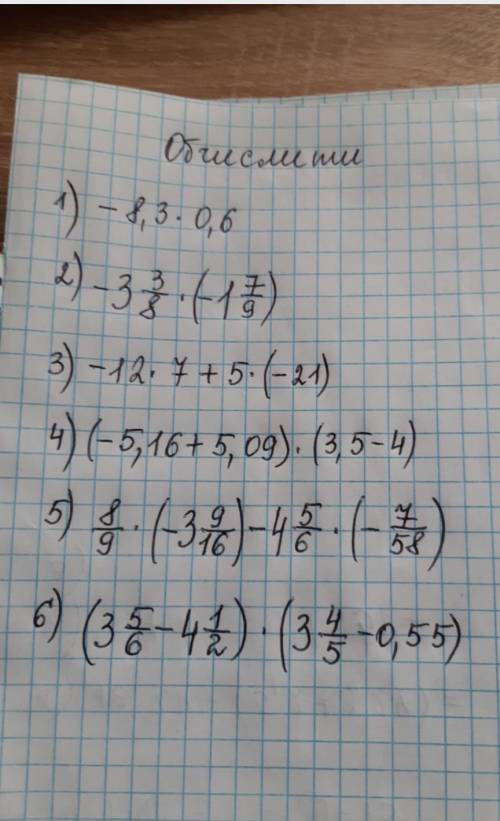 Обчислити
1) -8,3 · 0,6
2) -3 3/8 · (-1 7/9)
3) -12 · 7 + 5 · (-21)
4) (-5,16 + 5,09) · (3,5 - 4)
5) 8/9 · (-3 9/16) - 4 5/6 · (- 7/58)
6) (3 5/6 - 4 1/2) · (3 4/5 - 0,55)